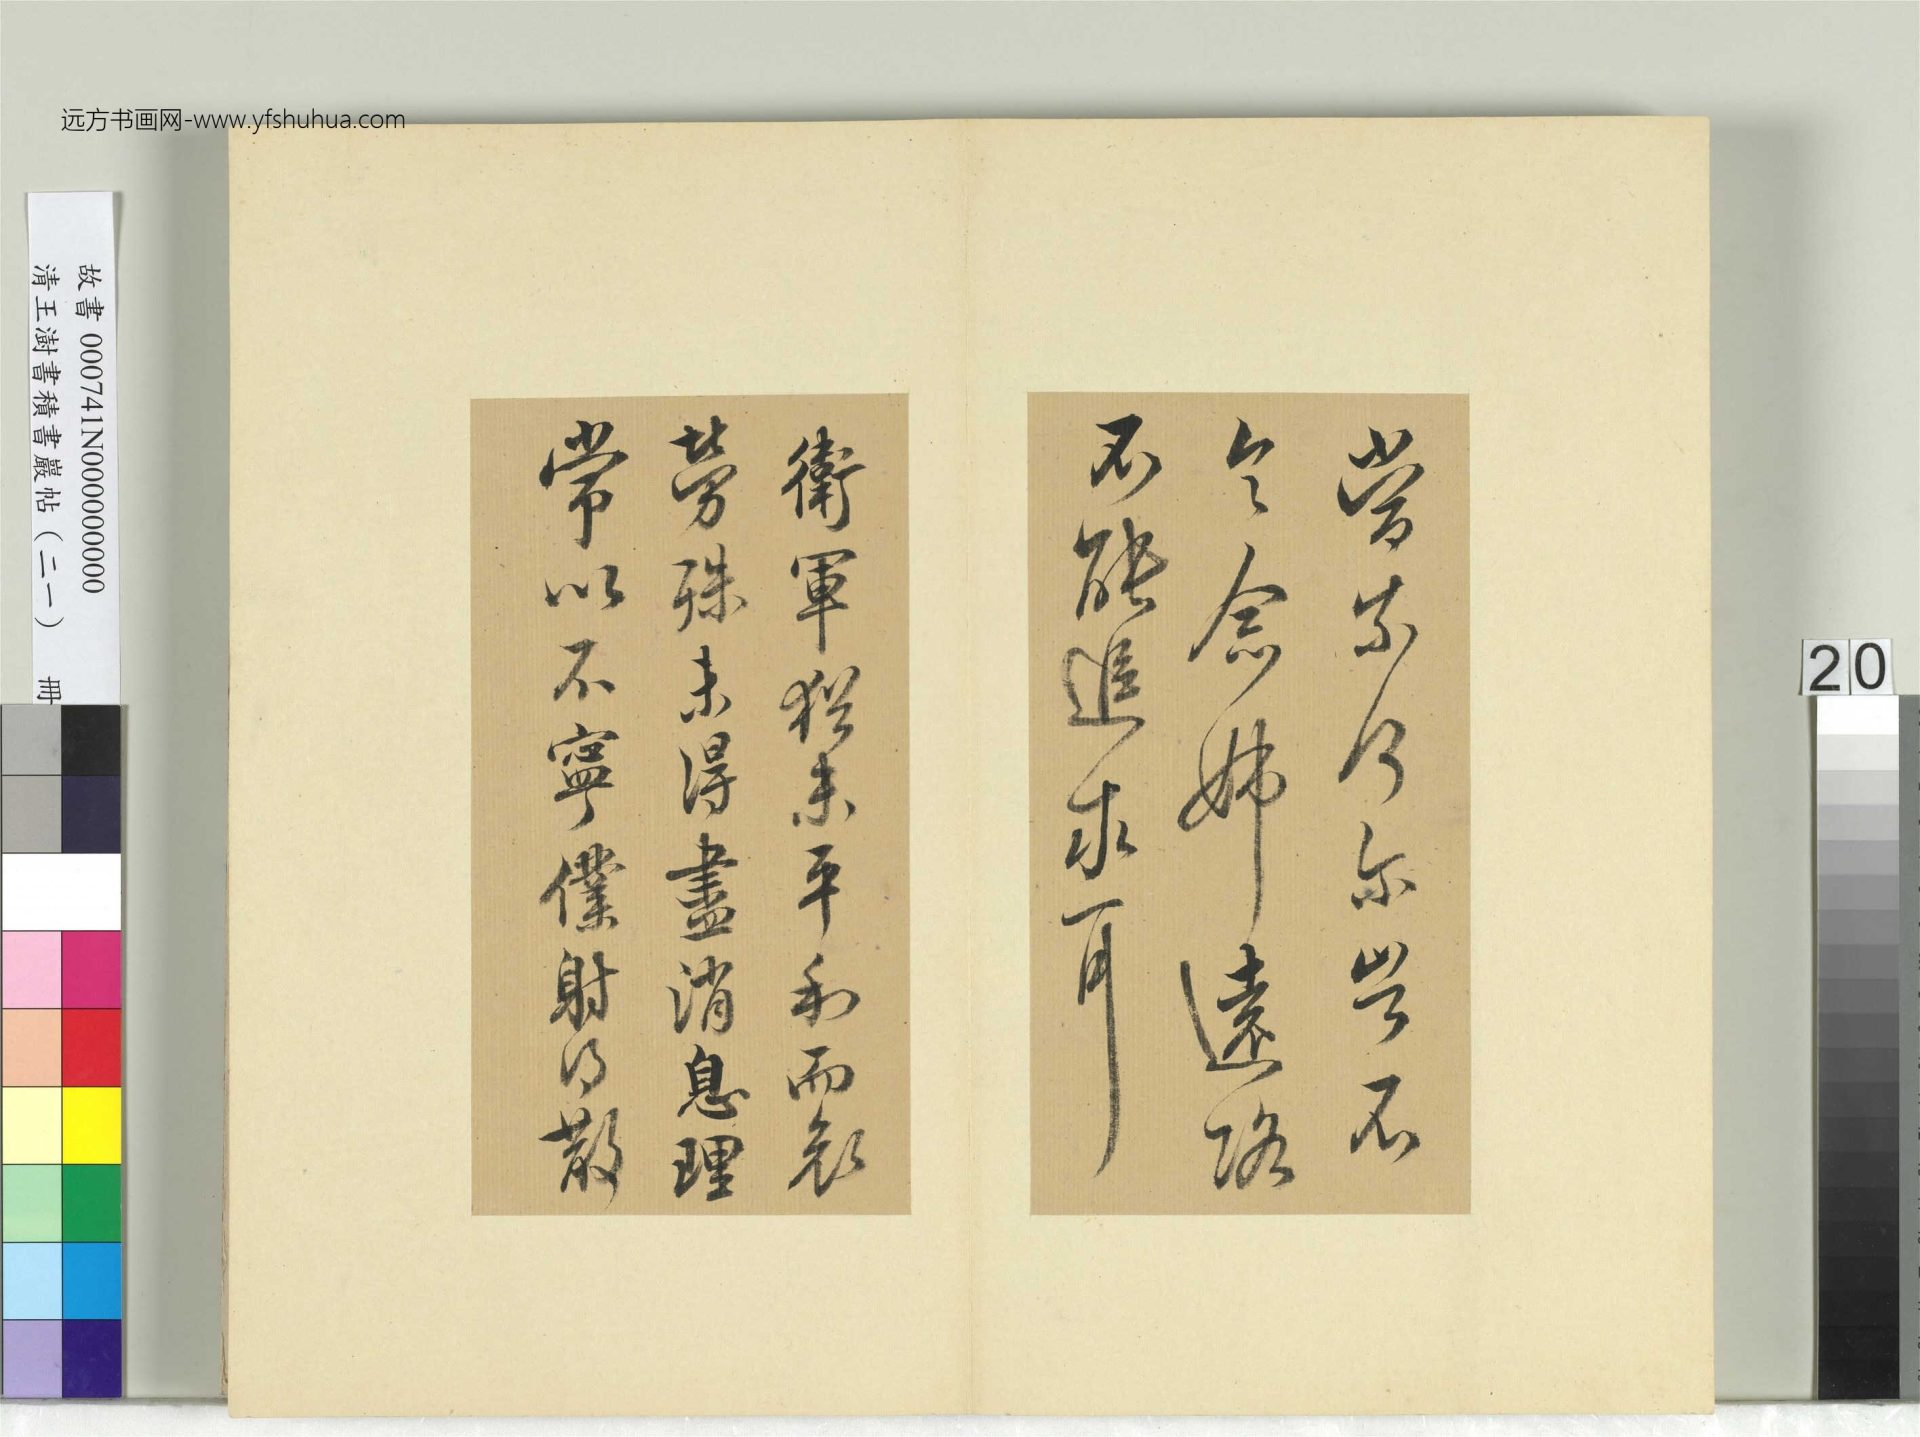 远方书画网-www.yfshuhua.com
故書 000741N000000000
清王澍書積書巖帖(二一) 冊
20
尔豈不
念姊遠路
不能追求耳
衛軍猶未平和而哀
勞殊未得盡消息理
常以不寧僕射得散